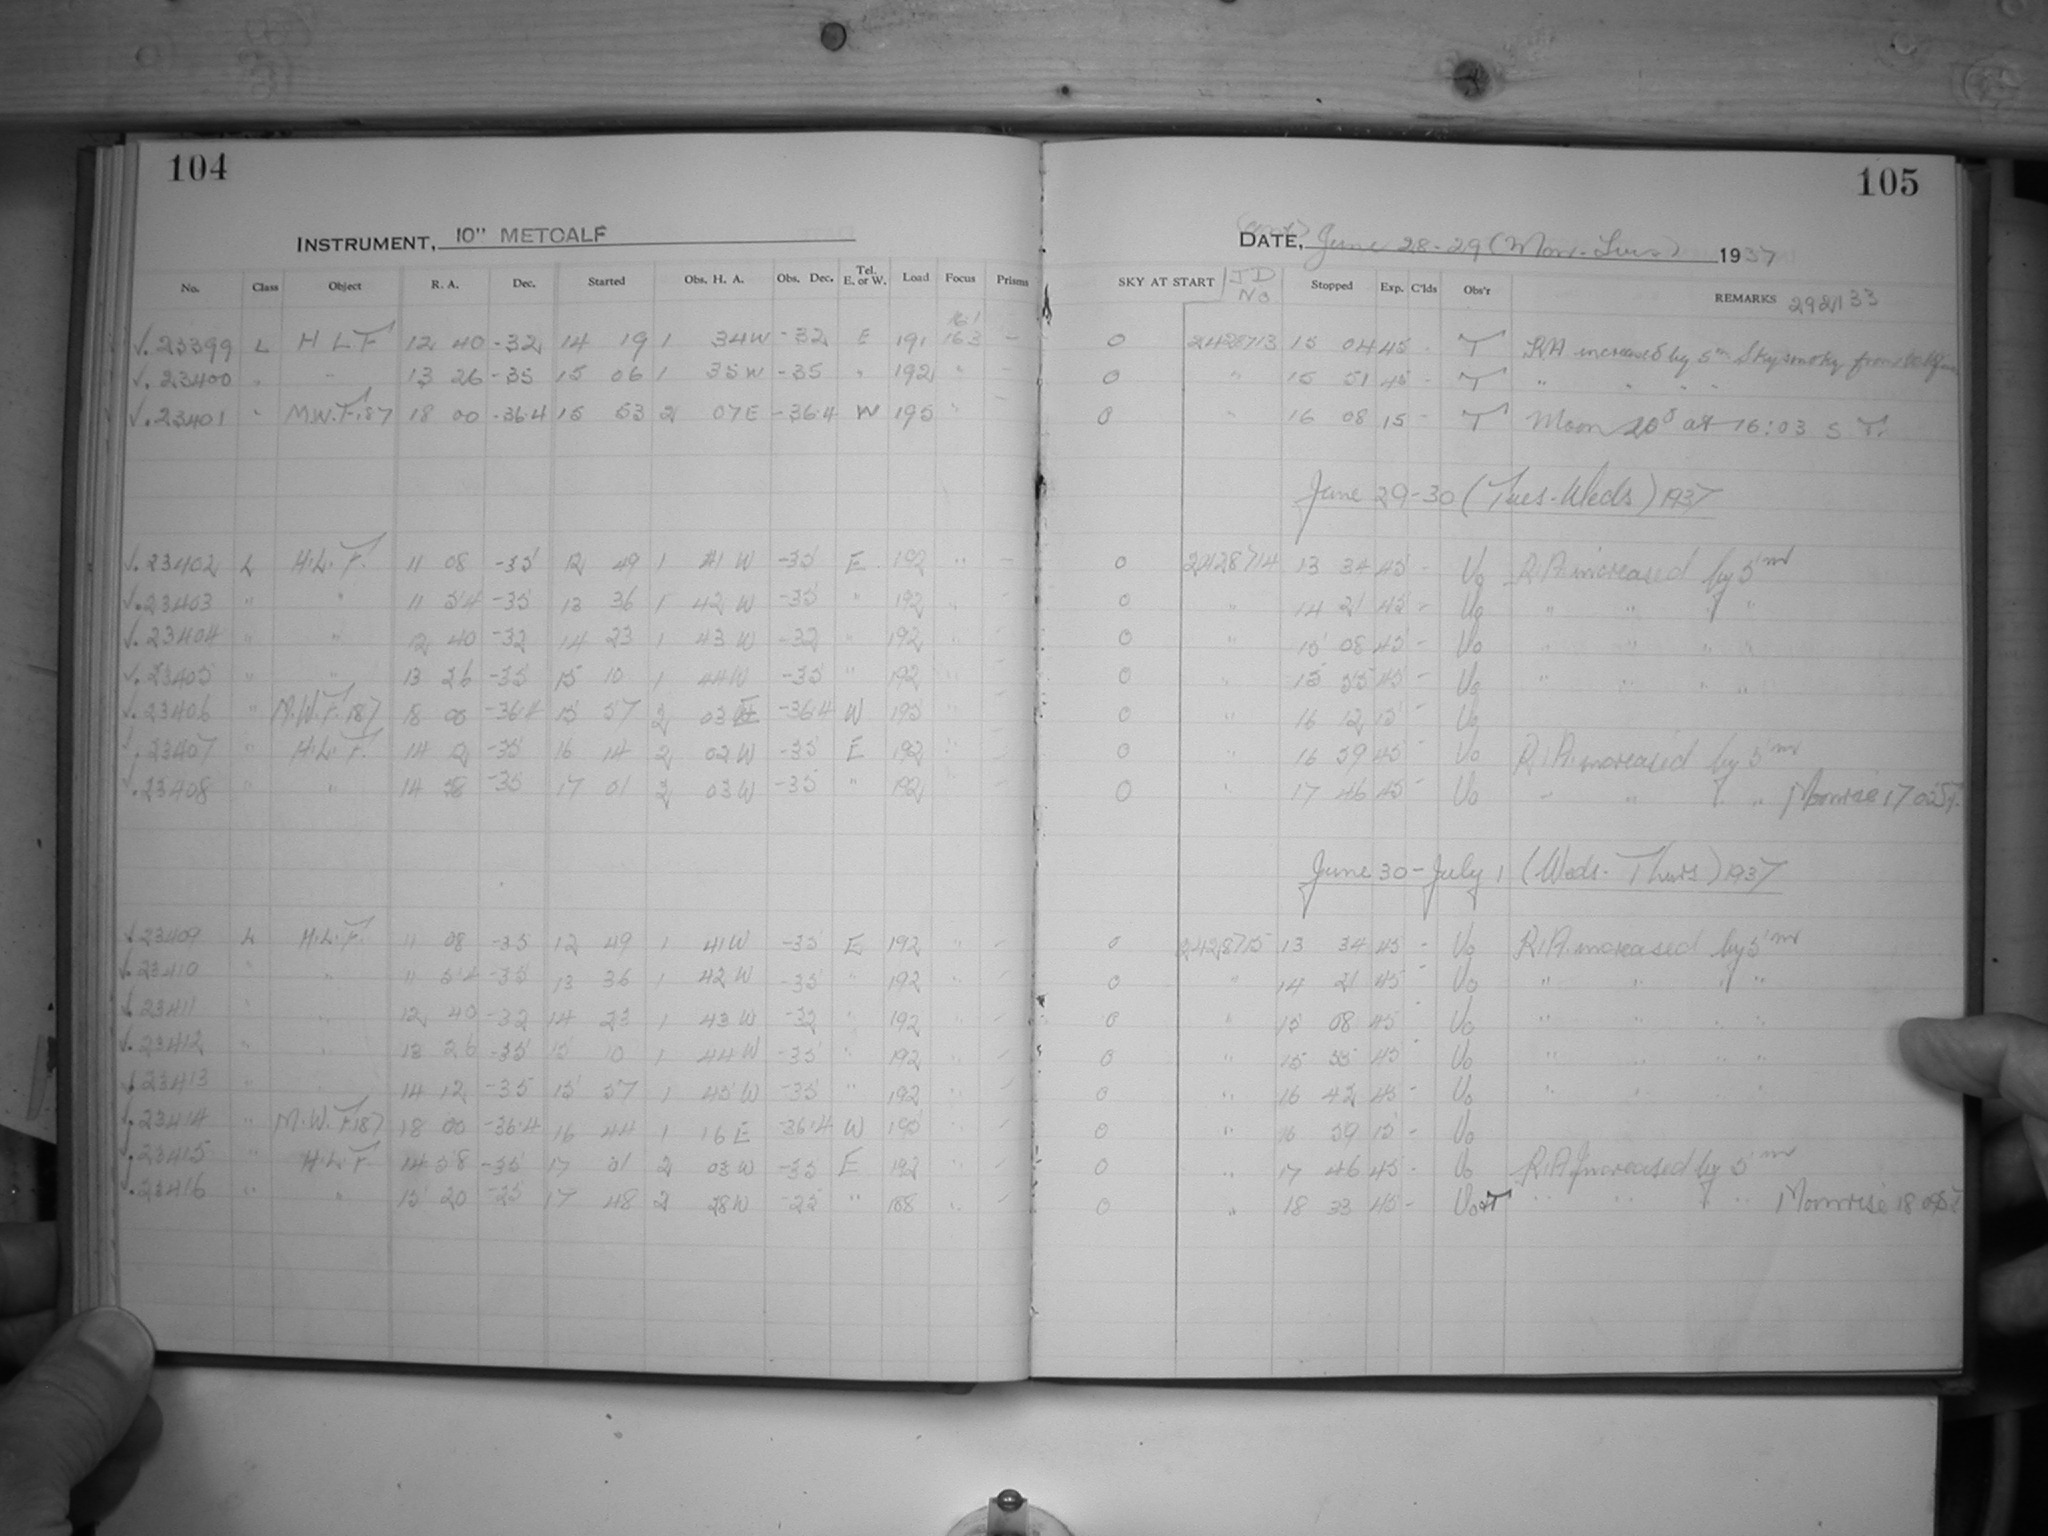 104
INSTRUMENT, 10" METCALF
No. Class Object R. A. Dec. Started Obs. H. A. Obs. Dec. Tel. E. or W. Load Focus Prisms
√. 23399 L H L F 12 40 -32 14 19 1 34W -32 E 191 163 -
√. 23400 " " 13 26 -35 15 06 1 35W -35 " 192 " -
√. 23401 " M.W.F.187 18 00 -36.4 15 53 2 07E -36.4 W 195 " -
√. 23402 L H.L.F. 11 08 -35 12 49 1 41 W -35 E 192 " -
√. 23403 " " 11 54 -35 13 36 1 42 W -35 " 192 " -
√. 23404 " " 12 40 -32 14 23 1 43 W -32 " 192 " -
√. 23405 " " 13 26 -35 15 10 1 44W -35 " 192 " -
√. 23406 " M.W.F.187 18 00 -36.4 15 57 2 03 E -36.4 W 195 " -
√. 23407 " H.L.F. 14 12 -35 16 14 2 02W -35 E 192 " -
√. 23408 " " 14 58 -35 17 01 2 03W -35 " 192 " -
√. 23409 L H.L.F. 11 08 -35 12 49 1 41W -35 E 192 " -
√. 23410 " " 11 54 -35 13 36 1 42W -35 " 192 " -
√. 23411 " " 12 40 -32 14 23 1 43 W -32 " 192 " -
√. 23412 " " 13 26 -35 15 10 1 44W -35 " 192 " -
√. 23413 " " 14 12 -35 15 57 1 45W -35 " 192 " -
√. 23414 " M.W.F187 18 00 -36.4 16 44 1 16E -36.4 W 195 " -
√. 23415 " H.L.F. 14 58 -35 17 01 2 03W -35 E 192 " -
√. 23416 " " 15 20 -25 17 48 2 28W -25 " 188 " -
105
(cont) DATE, June 28-29 (Mon.-Tues) 1937
SKY AT START JD No Stopped Exp. C'lds Obs'r REMARKS 292133
0 2428713 15 04 45 - T RA increased by 5m Sky smoky from
0 " 15 51 45 - T " " " "
0 " 16 08 15 - T Moon 20° at 16:03 S T.
June 29-30 (Tues-Weds) 1937
0 2428714 13 34 45 - Uo R.A. increased by 5m
0 " 14 21 45 - Uo " " " "
0 " 15 08 45 - Uo " " " "
0 " 15 55 45 - Uo " " " "
0 " 16 12 15 - Uo
0 " 16 59 45 - Uo R.A. increased by 5m
0 " 17 46 45 - Uo " " " " Moonrise 17
June 30-July 1 (Weds-Thurs) 1937
0 2428715 13 34 45 - Uo R.A. increased by 5m
0 " 14 21 45 - Uo " " " "
0 " 15 08 45 - Uo " " " "
0 " 15 55 45 - Uo " " " "
0 " 16 42 45 - Uo " " " "
0 " 16 59 15 - Uo
0 " 17 46 45 - Uo R.A. Increased by 5m
0 " 18 33 45 - Uo+T " " " " Moonrise 18